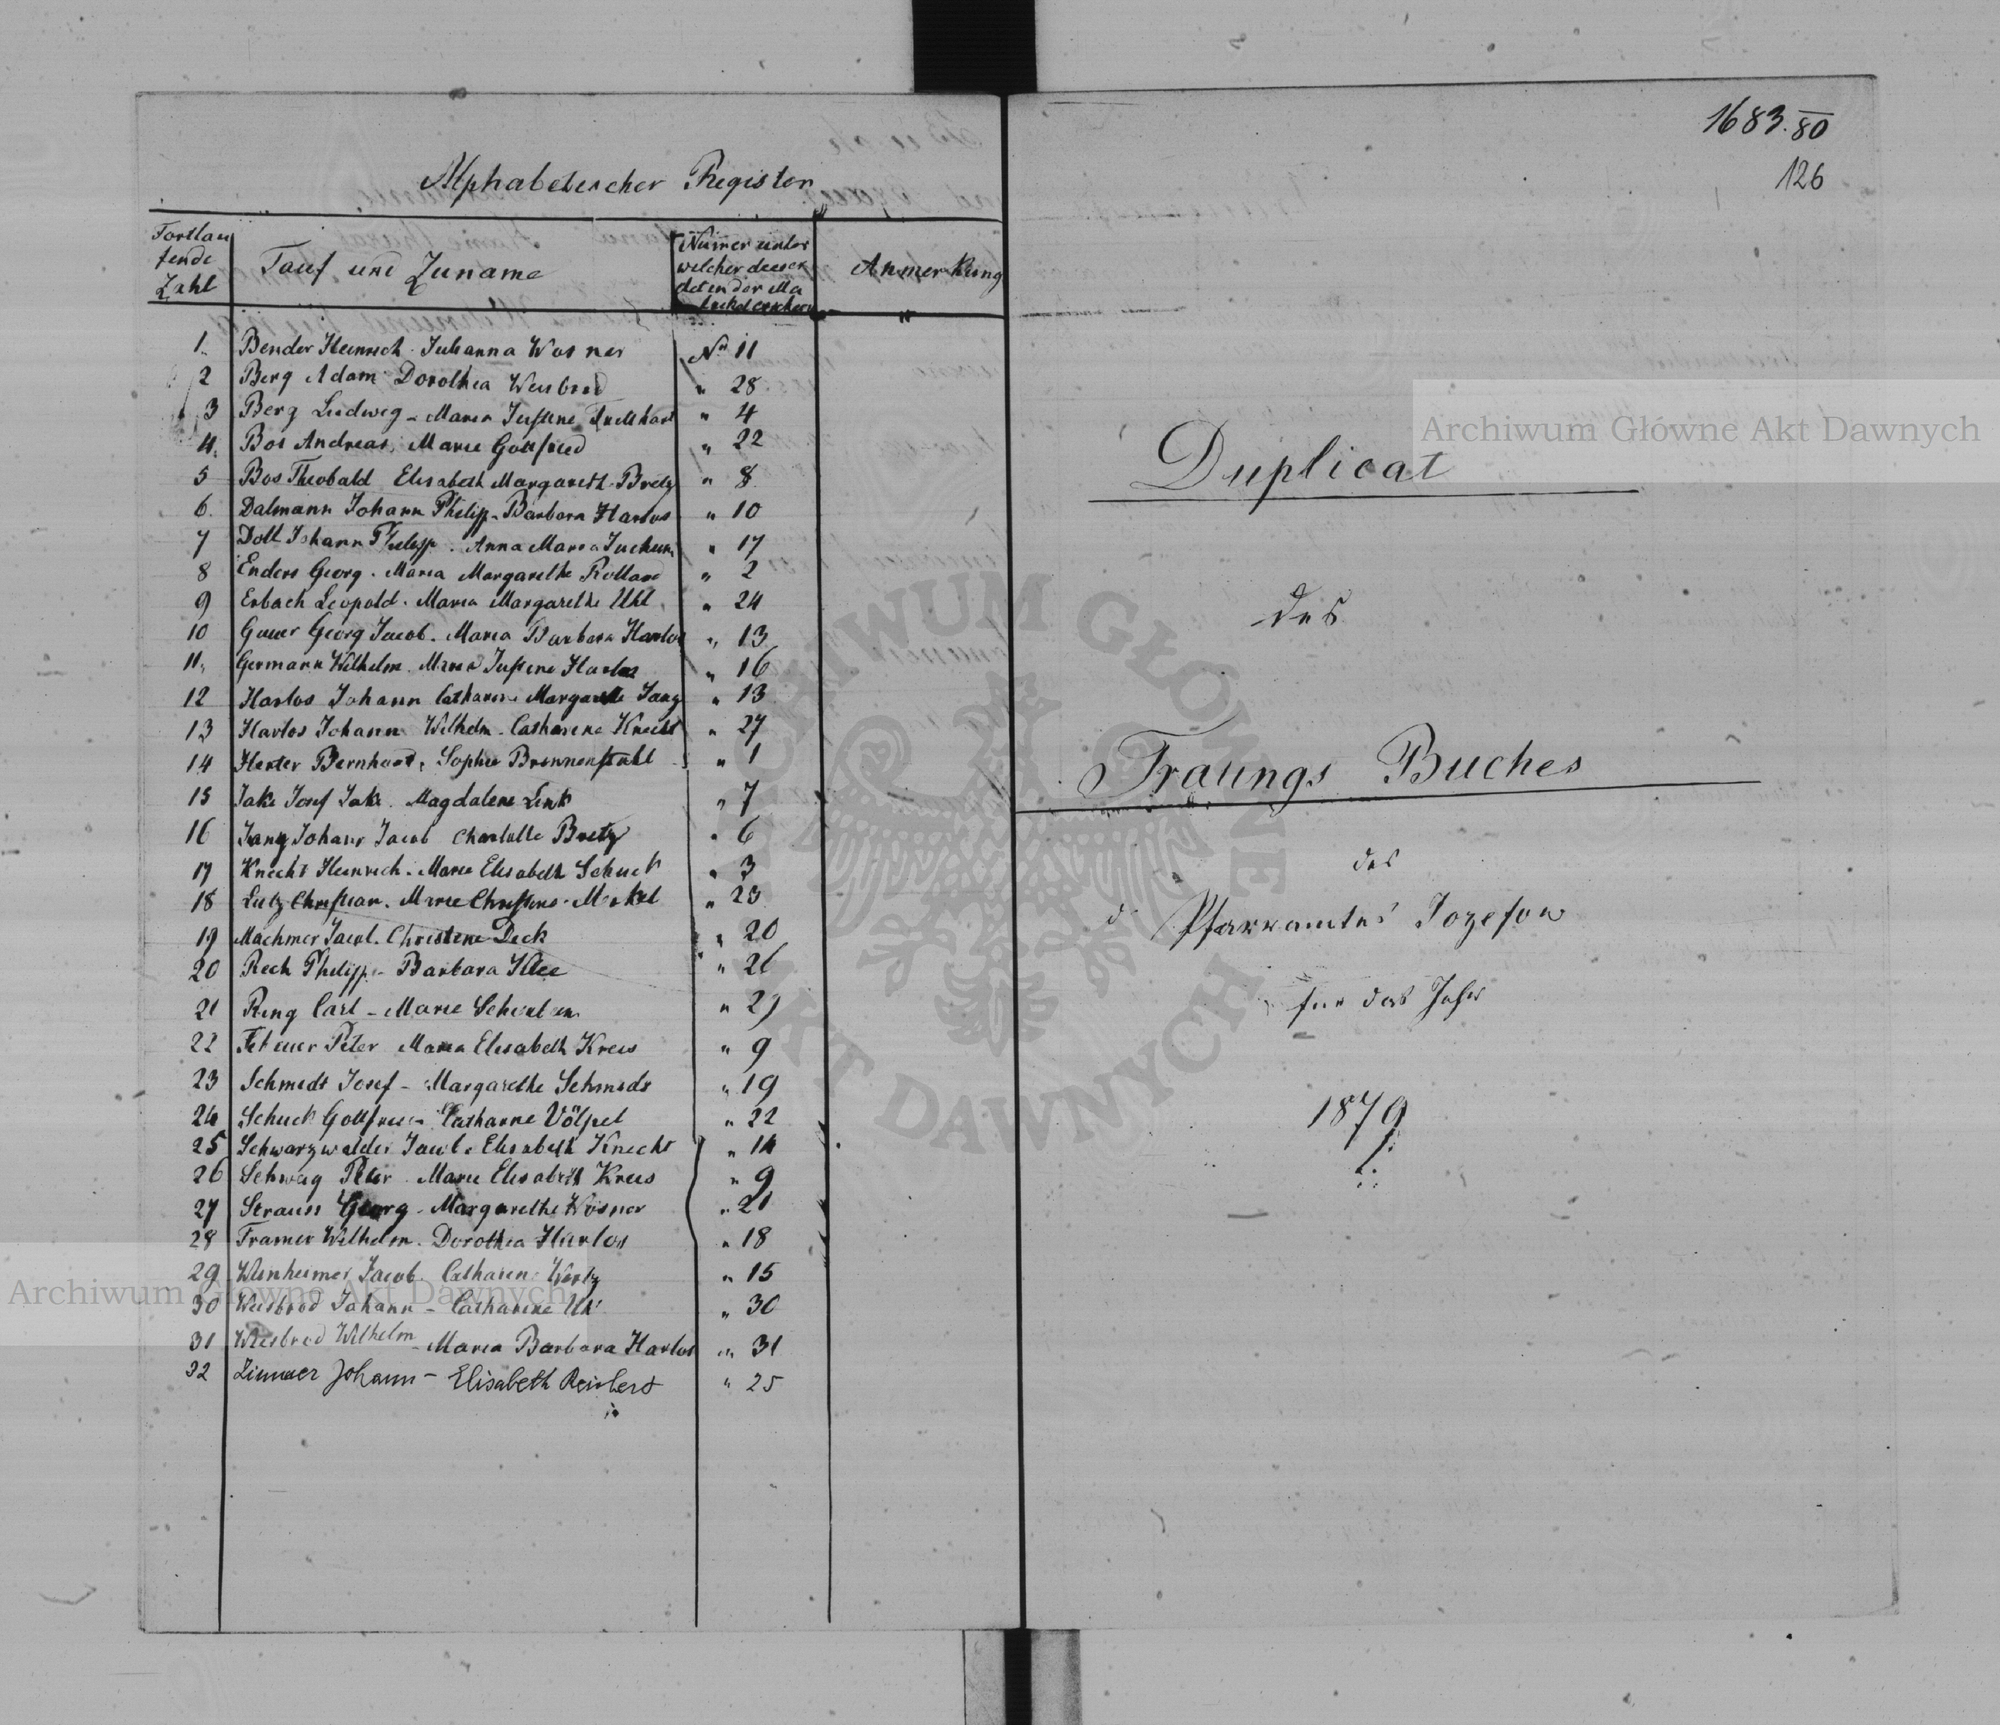 Alphabetischer Register
Fortlau
fende
Zahl
Tauf und Zuname
Numer unter
welcher dieser
Anmerkung
1. Bender Heinrich. Julianna Wosner No 11
2 Berg Adam Dorothea Weisbrod " 28
3 Berg Ludwig - Maria Justine " 4
4. Bos Andreas, Marie Gottfried " 22
5 Bos Theobald Elisabeth Margareth Bretz " 8
6. Dalmann Johann Philipp - Barbara Harlos " 10
7 Doll Johann Philipp. Anna Maria Juchum " 17
8 Enders Georg. Maria Margarethe Rolland " 2
9 Erbach Leopold. Maria Margarethe Uhl " 24
10 Gauer Georg Jacob. Maria Barbara Harlos " 13
11. Germann Wilhelm. Maria Justine Harlos " 16
12 Harlos Johann Catharine Margarethe Jang " 13
13 Harlos Johann Wilhelm. Catharina Knecht " 27
14 Herter Bernhard, Sophie Brennenstuhl " 1
15 Jaki Josef Magdalene Link " 7
16 Jang Johann Jacob Charlotte Bretz " 6
17 Knecht Heinrich. Marie Elisabeth Schuck " 3
18 Lutz Christian. Marie Christine Merkel " 23
19 Machmer Jacob. Christine Deck " 20
20 Rech Philipp - Barbara Klee " 26
21 Ring Carl - Marie " 29
22 Peter Maria Elisabeth Kreis " 9
23 Schmidt Josef - Margarethe Schmidt " 19
24 Schuck Gottfried Catharine Völpel " 22
25 Schwarzwalder Jacob. Elisabeth Knecht " 14
26 Schweig Peter Marie Elisabeth Kreis " 9
27 Strauss Georg - Margarethe Wosner " 21
28 Tramer Wilhelm. Dorothea Harlos " 18
29 Weinheimer Jacob. Catharine " 15
30 Weisbrod Johann - Catharine Uhl " 30
31 Weisbrod Wilhelm - Maria Barbara Harlos " 31
32 Zimmer Johann - Elisabeth " 25
1683.80
126
Duplicat
des
Trauungs Buches
des
Pfarramtes Jozefow
für das Jahr
1879
Archiwum Główne Akt Dawnych
ARCHIWUM GŁÓWNE AKT DAWNYCH
Archiwum Główne Akt Dawnych